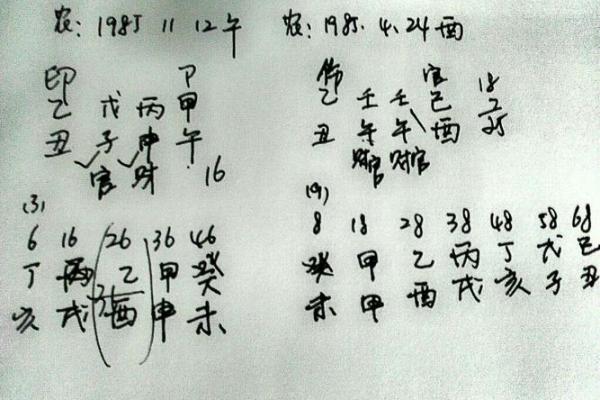 农: 1985 11 12午
印 P
乙 戊 丙 甲
丑 子 申 午
官 财 16
(3)
6 16 26 36 46
丁 丙 乙 甲 癸
亥 戌 酉 申 未
农: 1985. 4. 24酉
伤 官
乙 壬 壬 己 18
丑 午 午 酉 25
财官 财官
(9)
8 18 28 38 48 58 68
癸 甲 乙 丙 丁 戊 己
未 甲 酉 戌 亥 子 丑